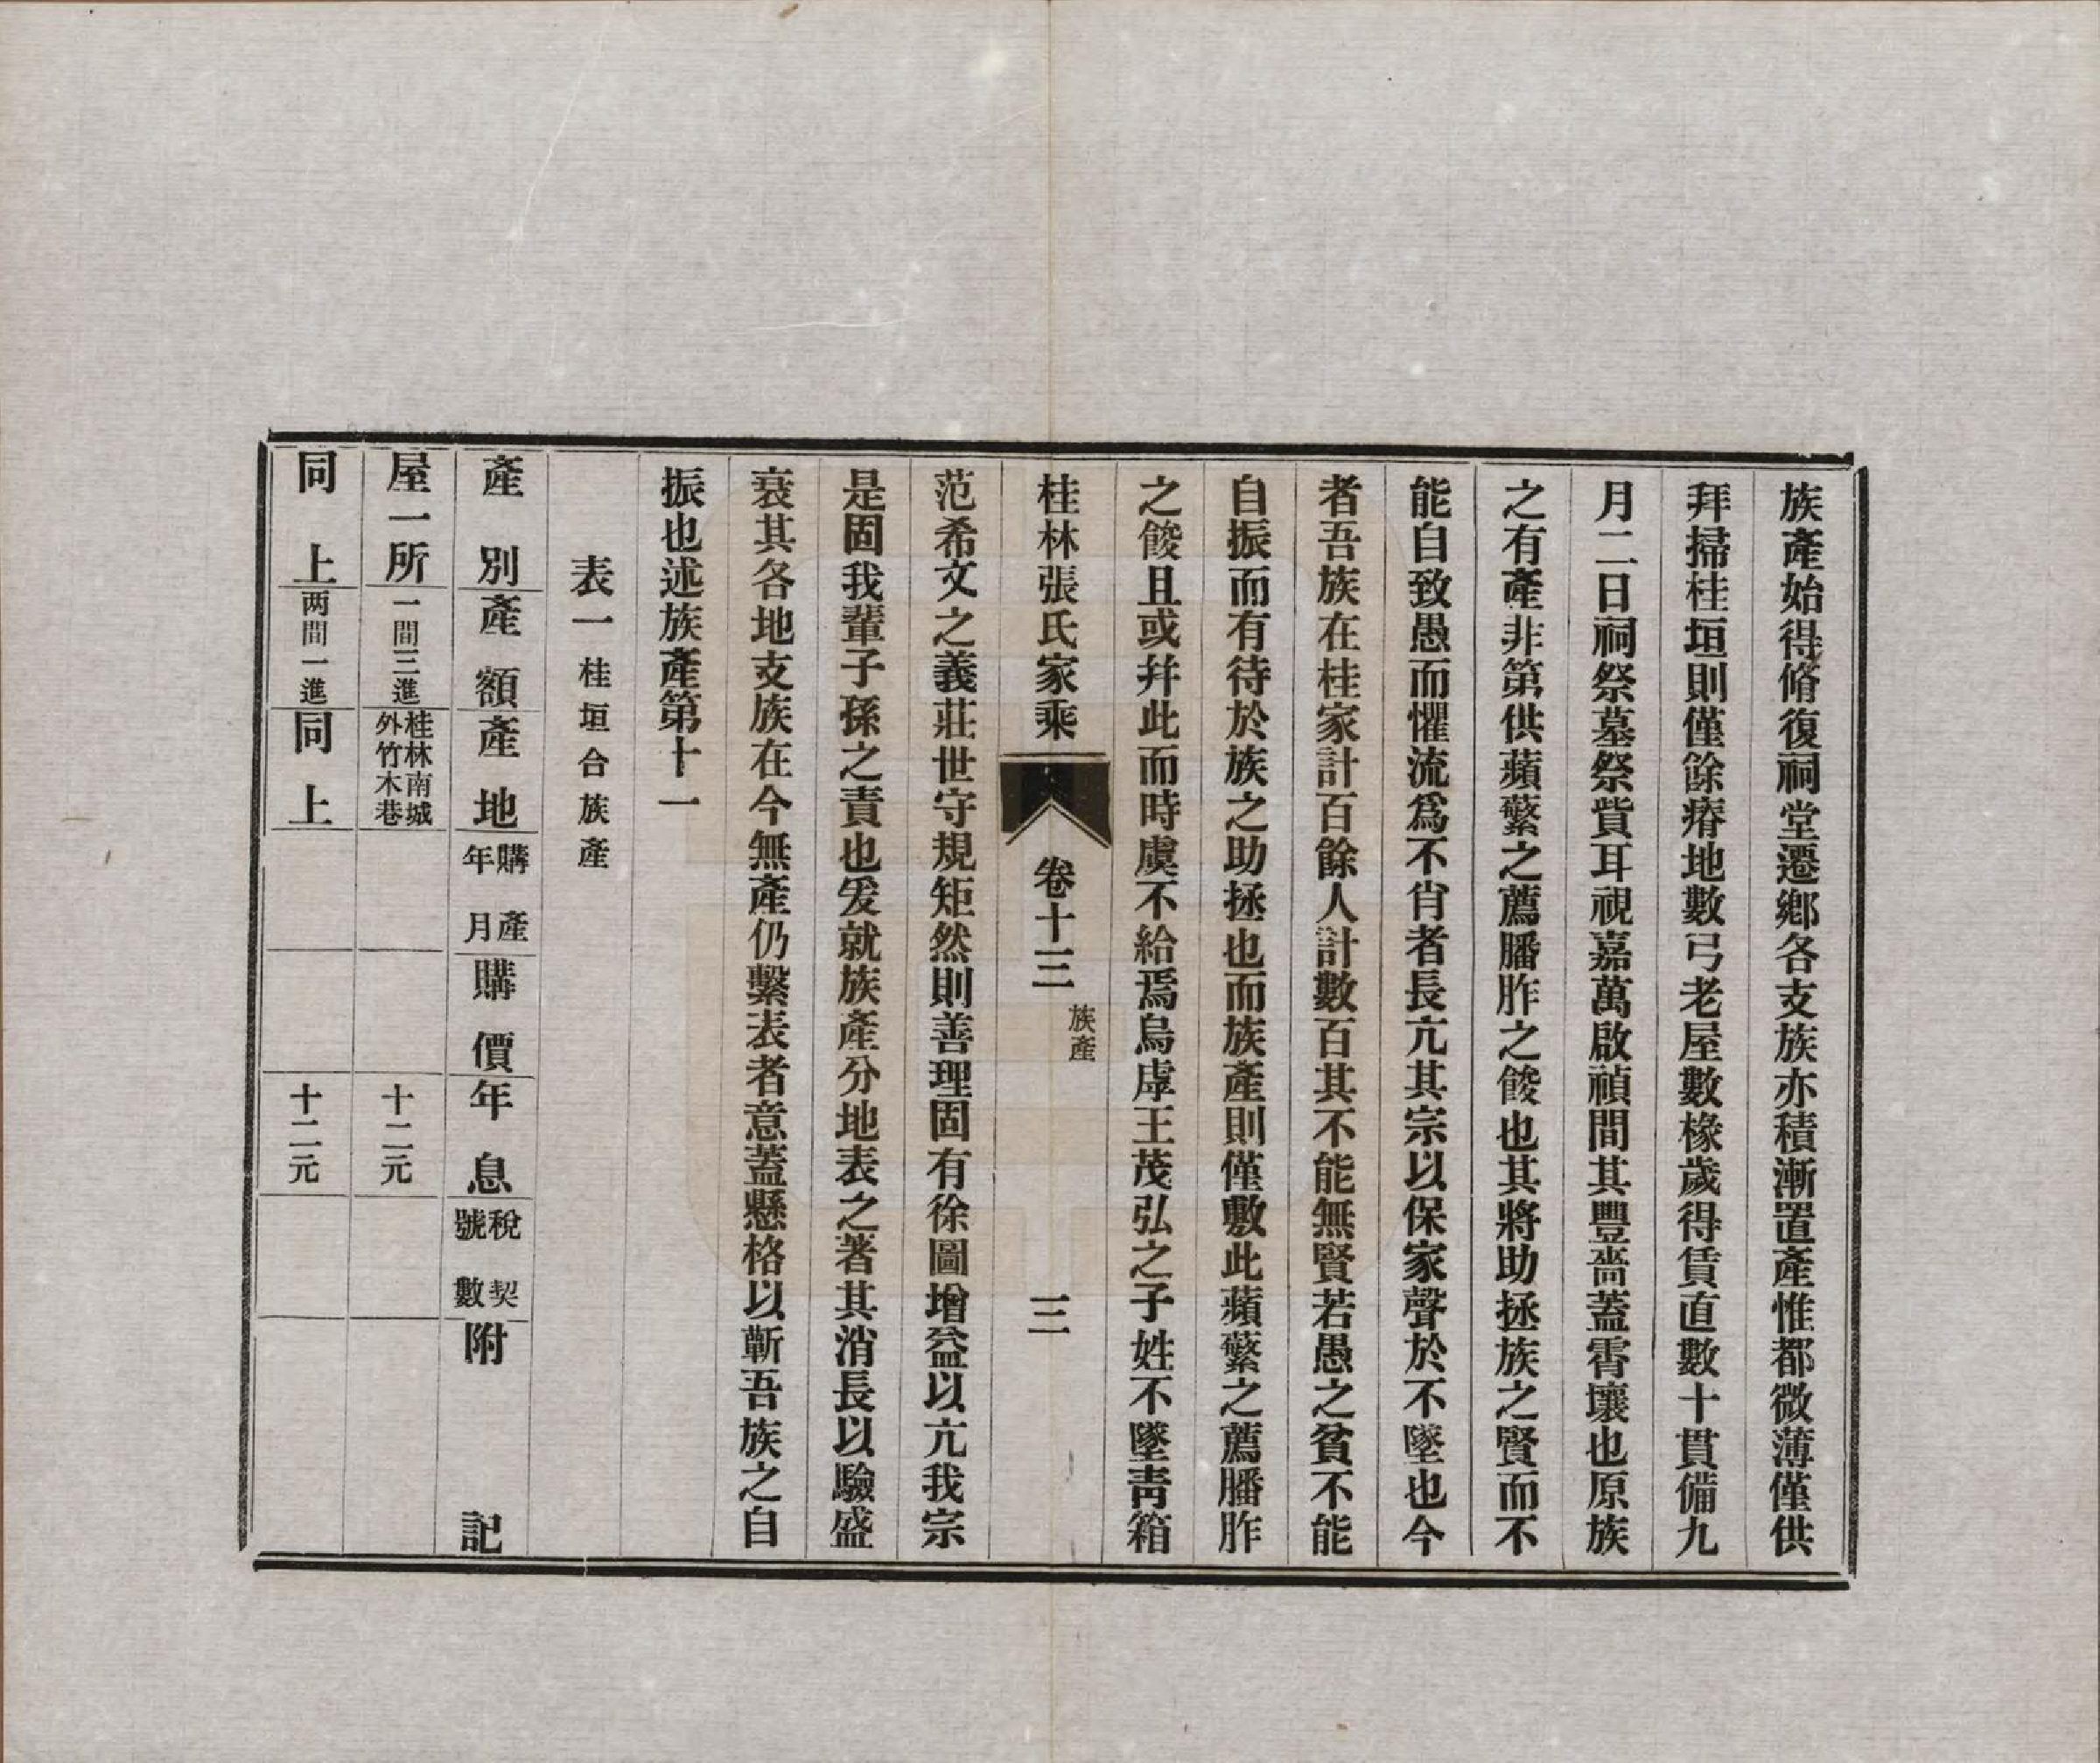 族產始得脩復祠堂遷鄉各支族亦積漸置產惟都微薄僅供
拜掃桂垣則僅餘瘠地數弓老屋數椽歲得賃直數十貫備九
月二日祠祭墓祭貲耳視嘉萬啟禎間其豐嗇蓋霄壤也原族
之有產非第供蘋蘩之薦膰胙之餕也其將助拯族之賢而不
能自致愚而懼流爲不肖者長亢其宗以保家聲於不墜也今
者吾族在桂家計百餘人計數百其不能無賢若愚之貧不能
自振而有待於族之助拯也而族產則僅敷此蘋蘩之薦膰胙
之餕且或幷此而時虞不給焉烏虖王茂弘之子姓不墜靑箱
桂林張氏家乘 卷十三 族產 三
范希文之義莊世守規矩然則善理固有徐圖增益以亢我宗
是固我輩子孫之責也爰就族產分地表之著其消長以驗盛
衰其各地支族在今無產仍繫表者意蓋懸格以蘄吾族之自
振也述族產第十一
表一 桂垣合族產
產別 產額 產地 購產年月 購價 年息 稅契號數 附記
屋一所 一間三進 桂林南城外竹木巷 十二元
同上 两間一進 同上 十二元